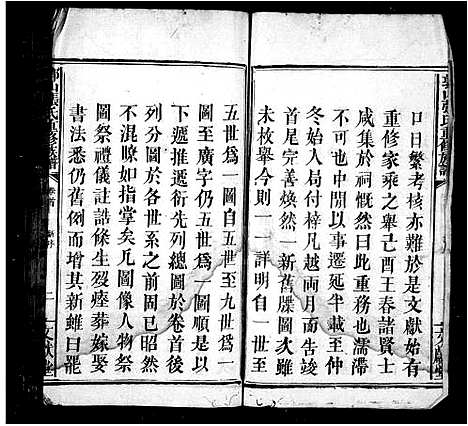 口日繁考核亦難於是文獻始有
重修家乘之舉己酉王春諸賢士
咸集於祠慨然曰此重務也濡滯
其間不可開以事遷延半載至仲
冬始入局付梓凡越兩月吿竣
首尾完善煥然一新舊牒圖次雖
未枚舉今則一一詳明自一世至
五世為一圖五世至九世為一
圖至廣字仍五世為一圖順是以
下遞推遞衍先列總圖於卷首後
列分圖於各世系之前歷歷昭然
不混瞭如指掌矣凡圖像人物祭
圖祭禮儀註誥條生歿瘞葬嫁娶
書法悉仍舊例而增其新雖曰罷
山張氏重修族譜
卷首
二
文獻堂